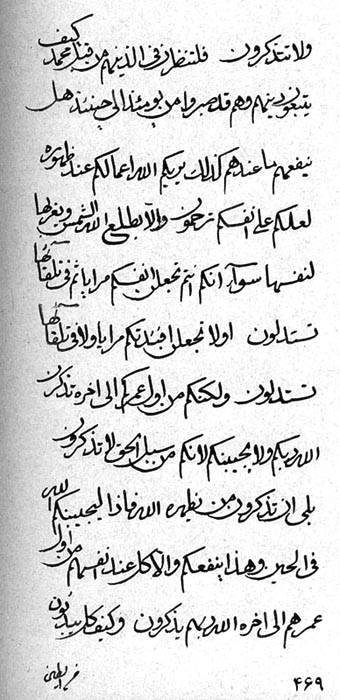 ولا تتذكرون فلتنظرن في الذينهم من قبل محمد كيف
يتبعون دينهم وهم قد صبروا من يومئذ الى حينئذ هل
ينفعهم ما عندهم كذلك يريكم الله اعمالكم عند ظهوره
لعلكم على انفسكم ترحمون والا يطلع الله الشمس ويغربها
لنفسها سواء انكم انتم تجعلن انفسكم مرايا ثم في تلقائها
تستدلون اولا تجعلن افئدتكم مرايا ولا في تلقائها
تستدلون ولكنكم من اول عمركم الى اخره تذكرن
الله ربكم ولا يجيبنكم لانكم من سبل الحق لا تذكرون
بلى ان تذكرون من يظهره الله فاذا ليجيبنكم الله
في الحين وهذا ينفعكم والا كل عند انفسهم من اول
عمرهم الى اخره الله ربهم يذكرون وكيف كل يبدئون
۴۶۹